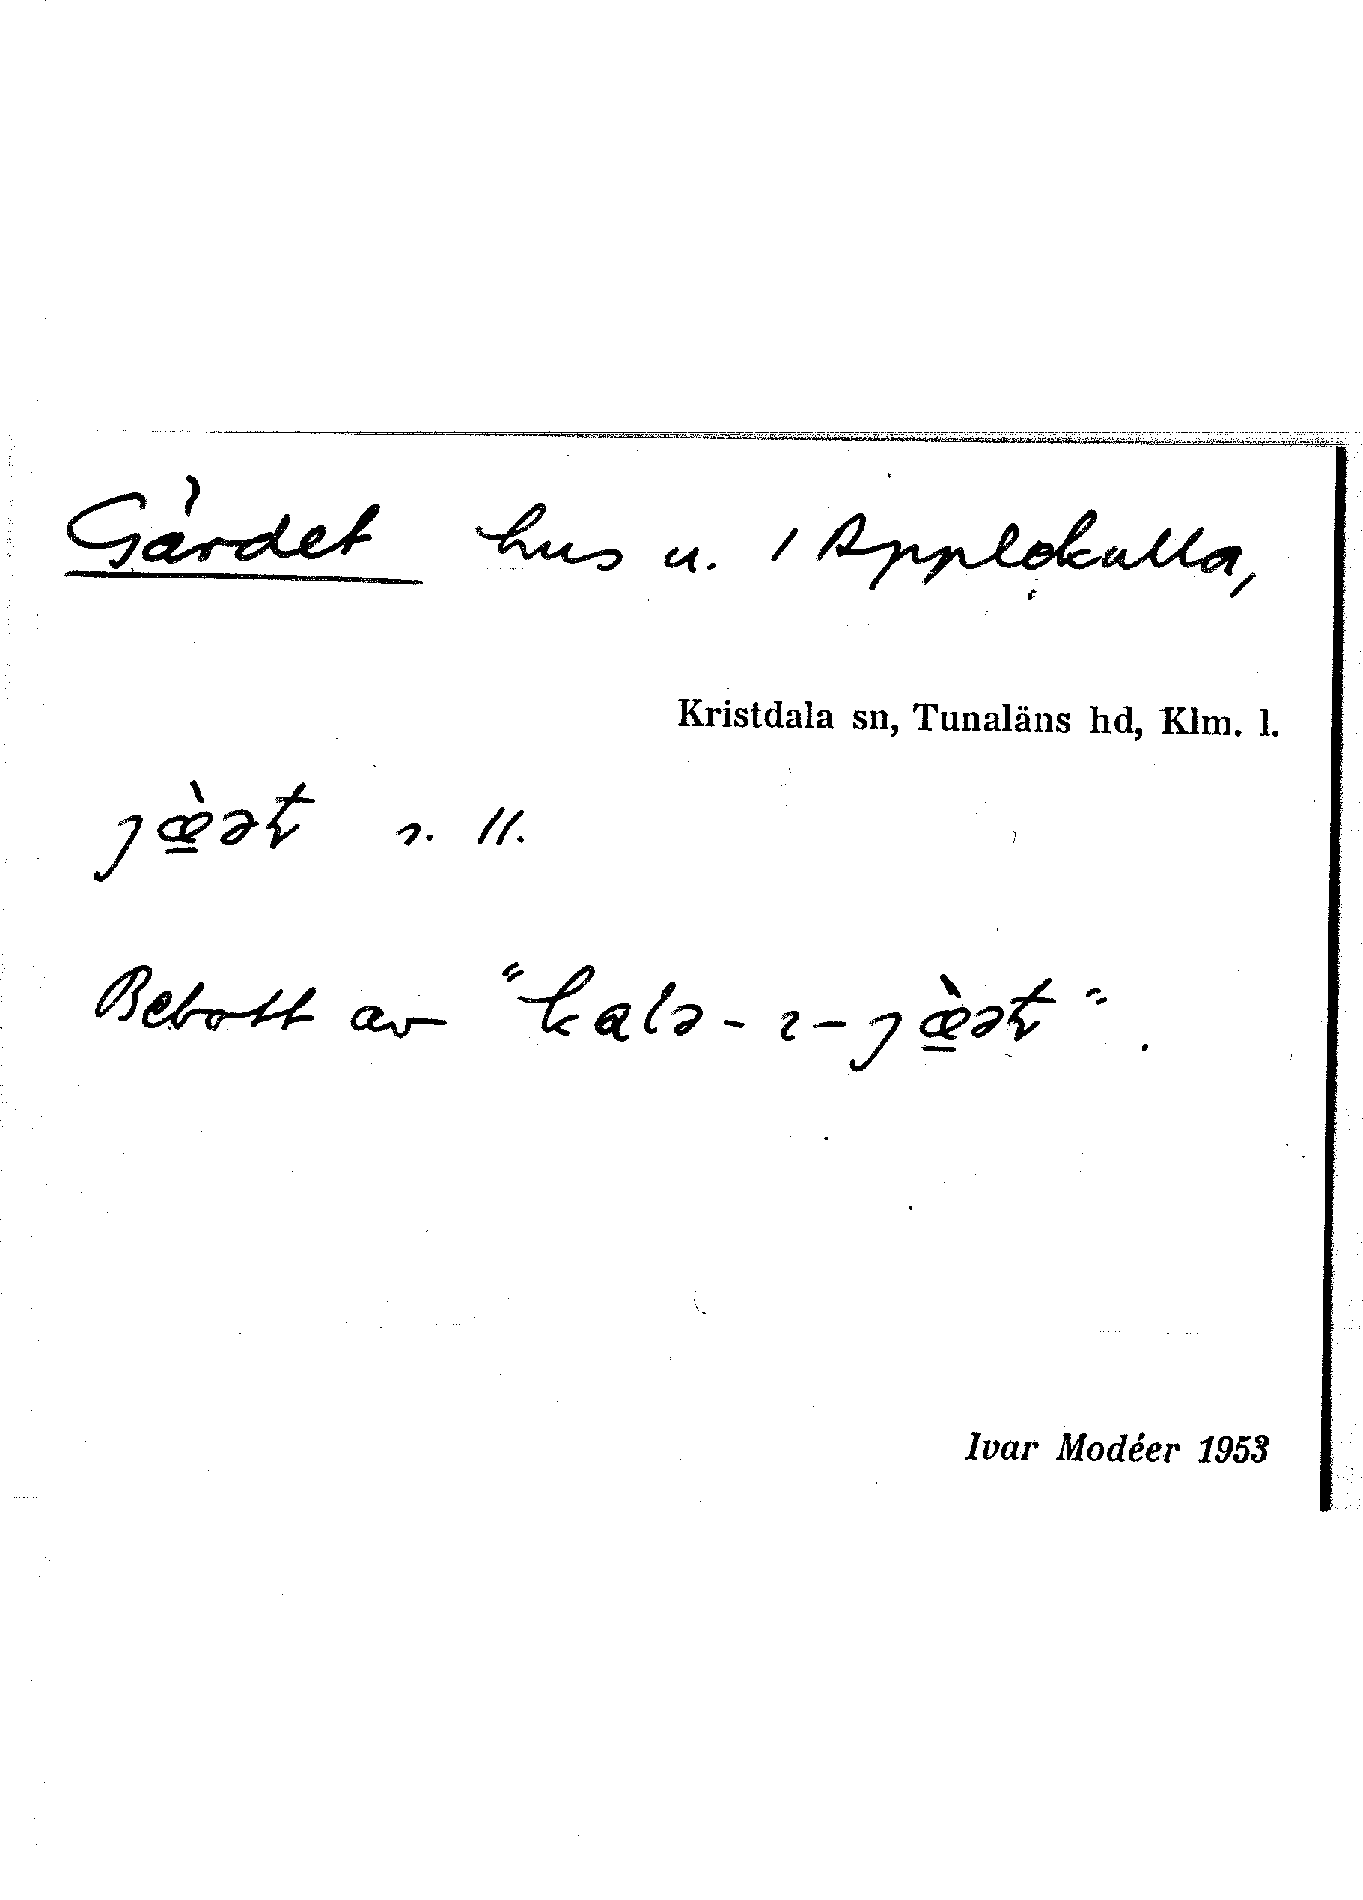 Gärdet hus u. / Applekulla,
Kristdala sn, Tunaläns hd, Klm. l.
ȷæ̠̀ət n. //.
Bebott av "kalə-ı-ȷæ̠̀ət".
Ivar Modéer 1953